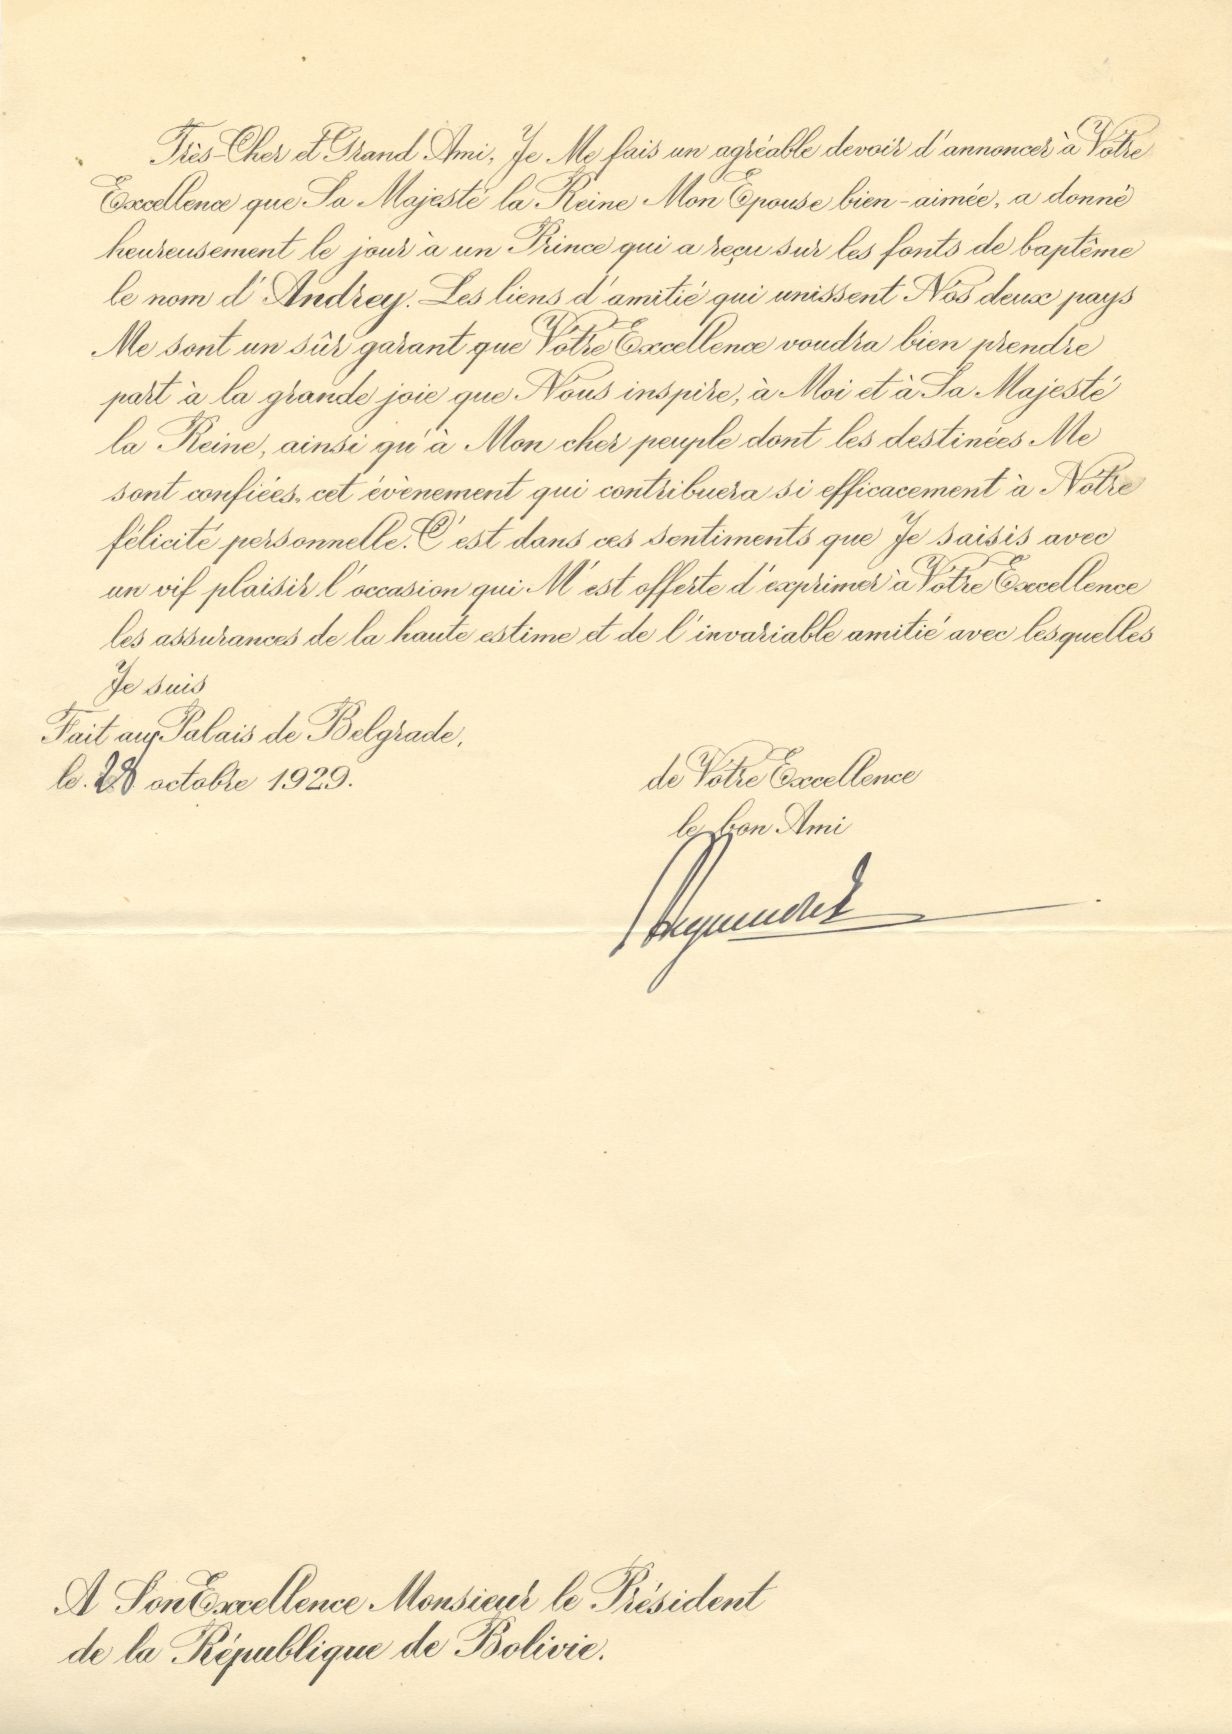 Très-Cher et Grand Ami, Je Me fais un agréable devoir d'annoncer à Votre
Excellence que Sa Majesté la Reine Mon Epouse bien-aimée, a donné
heureusement le jour à un Prince qui a reçu sur les fonts de baptême
le nom d'Andrey. Les liens d'amitié qui unissent Nos deux pays
Me sont un sûr garant que Votre Excellence voudra bien prendre
part à la grande joie que Nous inspire, à Moi et à Sa Majesté
la Reine, ainsi qu'à Mon cher peuple dont les destinées Me
sont confiées, cet évènement qui contribuera si efficacement à Notre
félicité personnelle. C'est dans ces sentiments que Je saisis avec
un vif plaisir l'occasion qui M'est offerte d'exprimer à Votre Excellence
les assurances de la haute estime et de l'invariable amitié avec lesquelles
Je suis
Fait au Palais de Belgrade,
le 28 octobre 1929.
de Votre Excellence
le bon Ami
A Son Excellence Monsieur le Président
de la République de Bolivie.